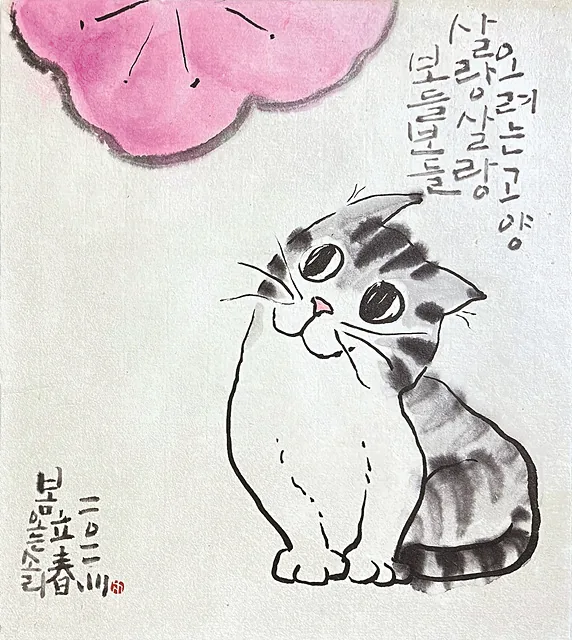 오려는고양
살랑살랑
보들보들
二〇二
立春
봄오는소리